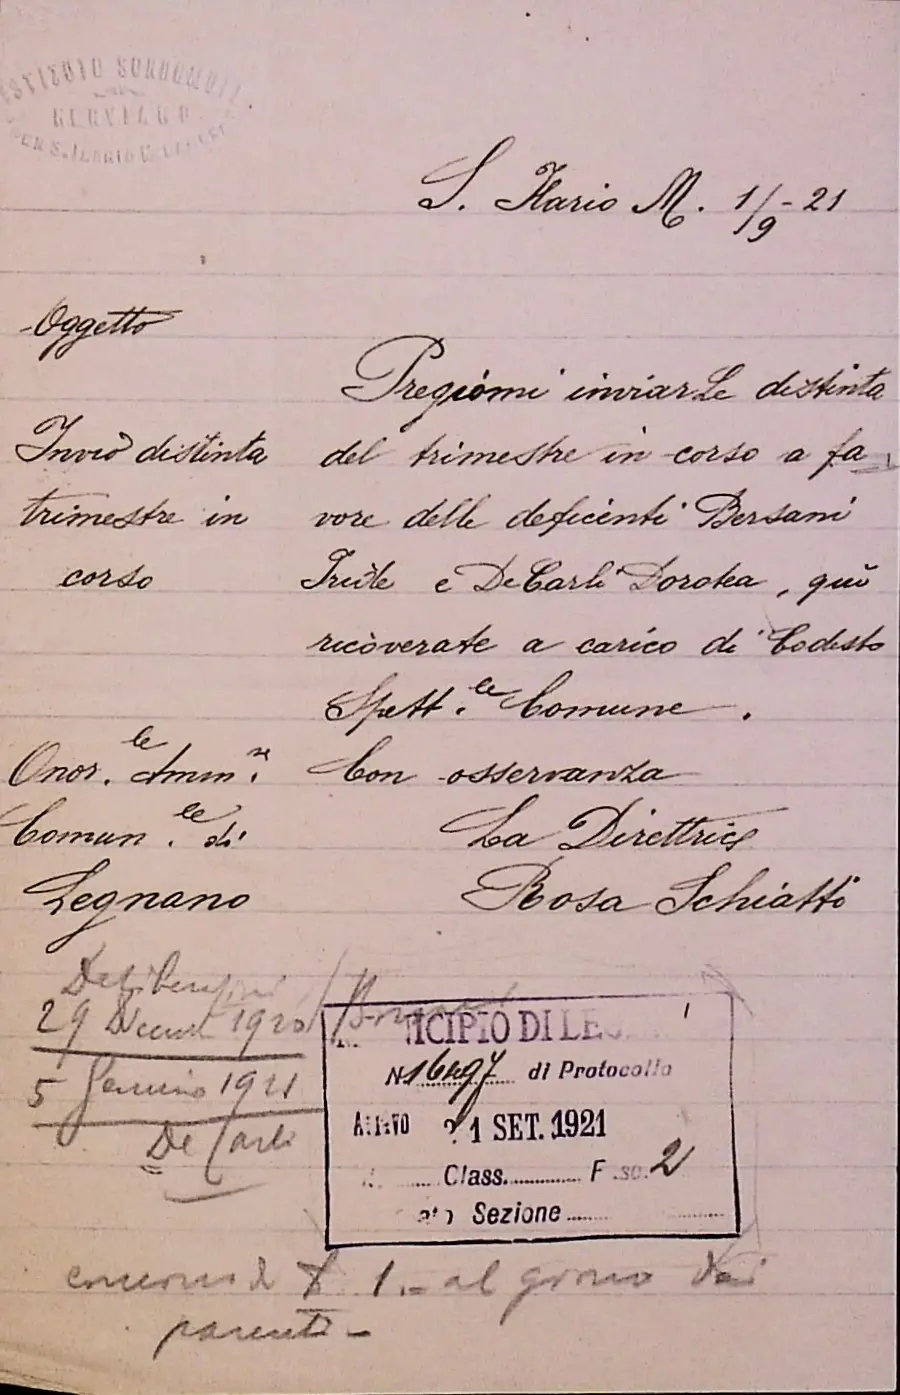 ISTITUTO SORDOMUTE
NERVIANO
PER S. ILARIO
S. Ilario M. 1/9-21
Oggetto
Invio distinta
trimestre in
corso
Pregiomi inviarLe distinta
del trimestre in corso a fa-
vore delle deficenti Bersani
Iride e De Carli Dorotea, quì
ricoverate a carico di Codesto
Spett.le Comune.
Con osservanza
La Direttrice
Rosa Schiatti
Onor.le Amm.ne
Comun.le di
Legnano
29 1920
5 Gennaio 1921
De Carli
NICIPIO DI LE
N di Protocollo
ARRIVO 21 SET. 1921
Class. Fasc. 2
Sezione
£ 1.- al giorno dai
parenti -